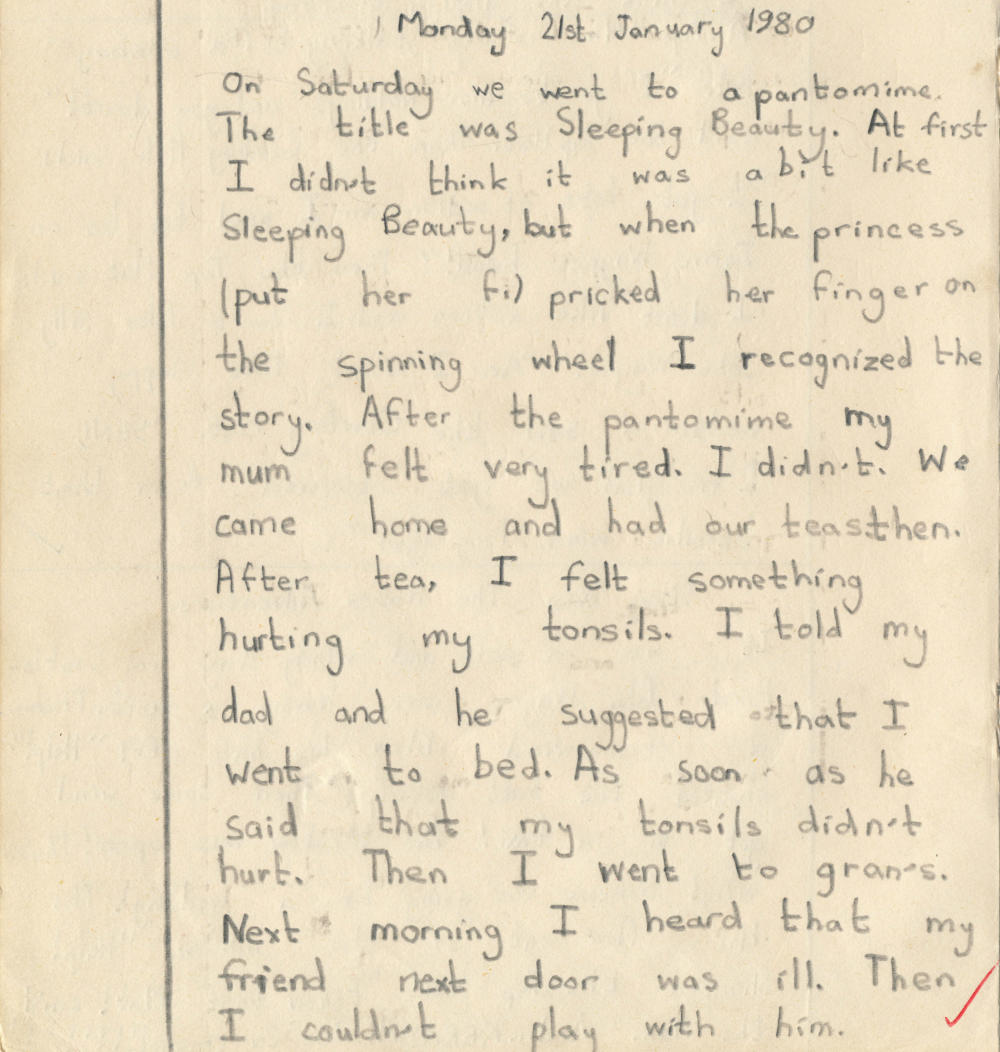 Monday 21st January 1980
On Saturday we went to a pantomime.
The title was Sleeping Beauty. At first
I didn't think it was a bit like
Sleeping Beauty, but when the princess
(put her fi) pricked her finger on
the spinning wheel I recognized the
story. After the pantomime my
mum felt very tired. I didn't. We
came home and had our teas then.
After tea, I felt something
hurting my tonsils. I told my
dad and he suggested that I
went to bed. As soon as he
said that my tonsils didn't
hurt. Then I went to gran's.
Next morning I heard that my
friend next door was ill. Then
I couldn't play with him.